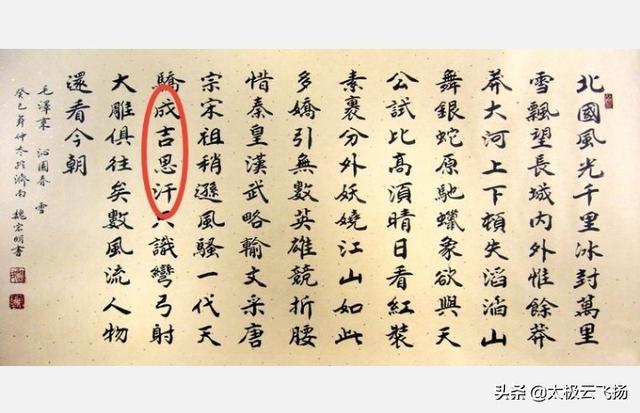 北國風光千里冰封萬里
雪飄望長城內外惟餘莽
莽大河上下頓失滔滔山
舞銀蛇原馳蠟象欲與天
公試比高須晴日看紅裝
素裹分外妖嬈江山如此
多嬌引無數英雄競折腰
惜秦皇漢武略輸文采唐
宗宋祖稍遜風騷一代天
驕成吉思汗只識彎弓射
大雕俱往矣數風流人物
還看今朝
毛澤東 沁園春 雪
癸巳年仲冬於濟南 魏宏明書
头条 @太极云飞扬